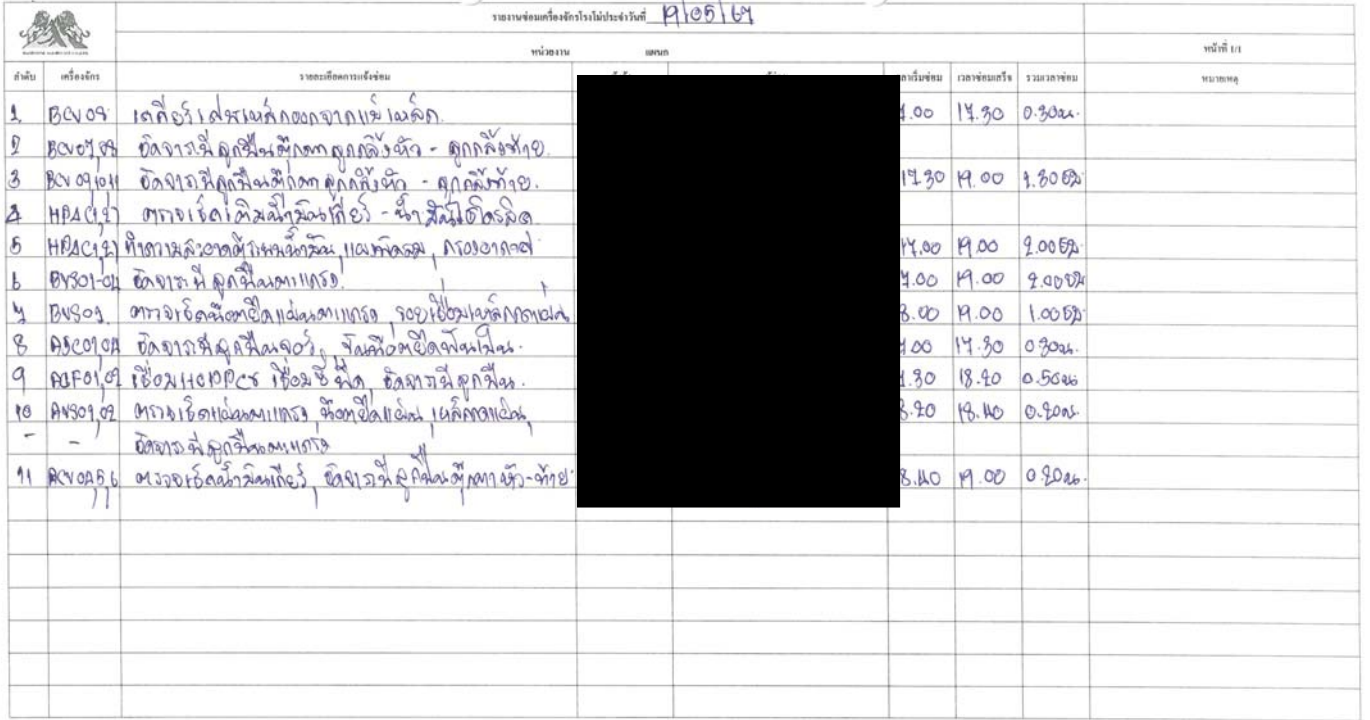 รายงานซ่อมเครื่องจักรโรงโม่ประจำวันที่ 19/05/67
หน่วยงาน แผนก หน้าที่ 1/1
ลำดับ เครื่องจักร รายละเอียดการแจ้งซ่อม ลาเริ่มซ่อม เวลาซ่อมเสร็จ รวมเวลาซ่อม หมายเหตุ
1. BCV08 เคลียร์เศษเหล็กออกจากแม่เหล็ก 7.00 17.30 0.30น.
2 BCV07,08 อัดจารบีลูกปืนตุ๊กตาลูกกลิ้งหัว - ลูกกลิ้งท้าย.
3 BCV09,10,11 อัดจารบีลูกปืนตุ๊กตาลูกกลิ้งหัว - ลูกกลิ้งท้าย. 17.30 19.00 1.30
4 HPAC1,2 ตรวจเช็คเติมน้ำมันเกียร์ - น้ำมันไฮดรอลิค
5 HPAC1,2 ทำความสะอาด น้ำมัน, แผง พัดลม, กรองอากาศ 17.00 19.00 2.00
6 BVS01-04 อัดจารบีลูกปืนตะแกรง. 7.00 19.00 2.00
7 BVS0 ตรวจเช็คน๊อตยึดแผ่นตะแกรง, รอยเชื่อมเหล็กกดแผ่น 8.00 19.00 1.00
8 อัดจารบีลูกปืนจอว์, ขันน๊อตยึดฟัน 7.00 17.30 0.30น.
9 AGF01,02 เชื่อม เชื่อม อัดจารบีลูกปืน. 7.30 18.20 0.50น
10 AVS01,02 ตรวจเช็คแผ่นตะแกรง, น๊อตยึดแผ่น, เหล็กกดแผ่น, 8.20 18.40 0.20น.
- - อัดจารบีลูกปืนตะแกรง
11 ACV04,5,6 ตรวจเช็คน้ำมันเกียร์, อัดจารบีลูกปืนตุ๊กตา หัว-ท้าย 8.40 19.00 0.20น.